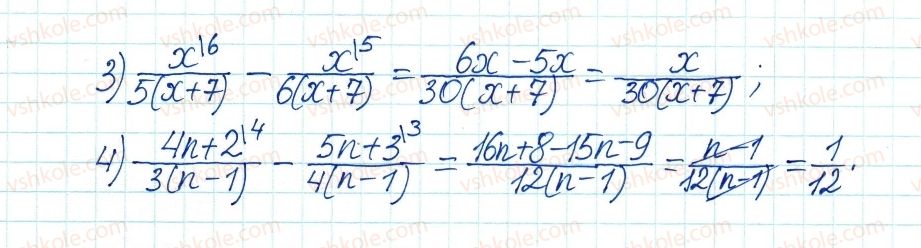 3) x\6/5(x+7) − x\5/6(x+7) = 6x−5x/30(x+7) = x/30(x+7);
4) 4n+2\4/3(n−1) − 5n+3\3/4(n−1) = 16n+8−15n−9/12(n−1) = n−1/12(n−1) = 1/12.